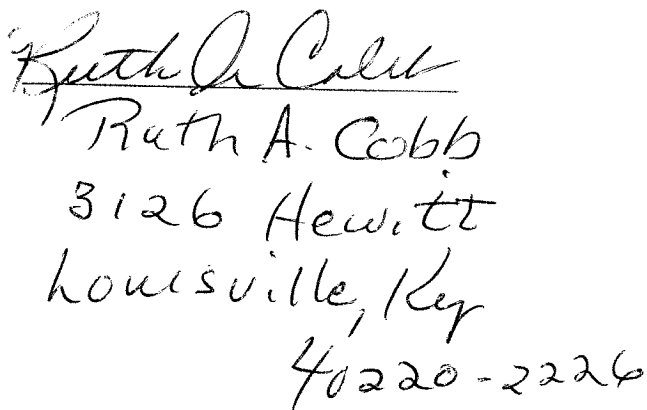 Ruth A Cobb
Ruth A. Cobb
3126 Hewitt
Louisville, Ky
40220-2226